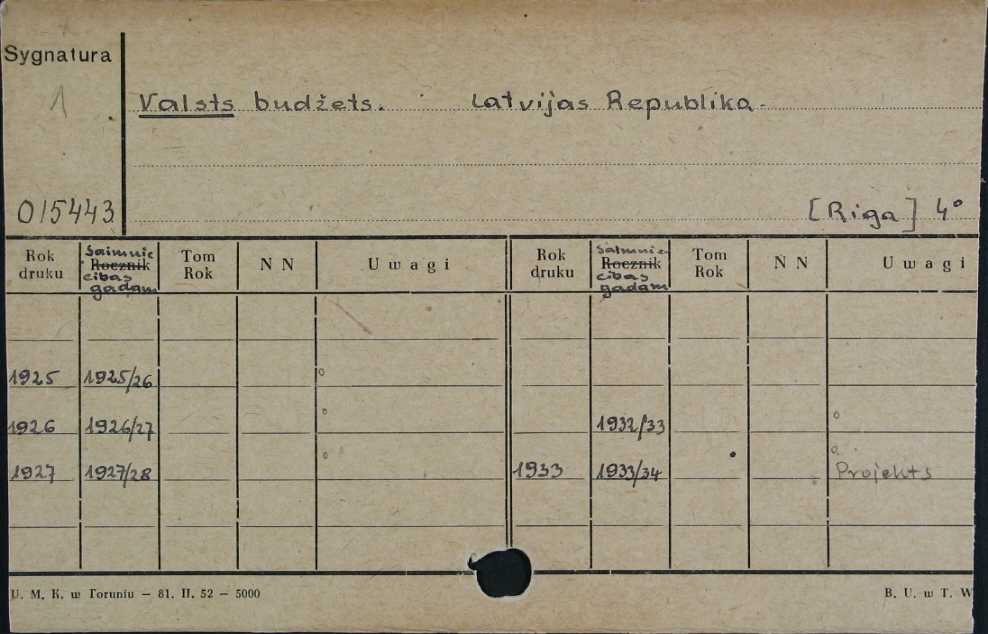 Sygnatura
1
Valsts budžets. Latvijas Republika.
015443
[Riga] 4°
Rok druku Saimnie Rocznik cibas gadam Tom Rok NN Uwagi Rok druku Saimnie Rocznik cibas gadam Tom Rok NN Uwagi
1925 1925/26
1926 1926/27 1932/33
1927 1927/28 1933 1933/34 Projekts
U. M. K. w Toruniu — 81. II. 52 — 5000
B. U. w T. W